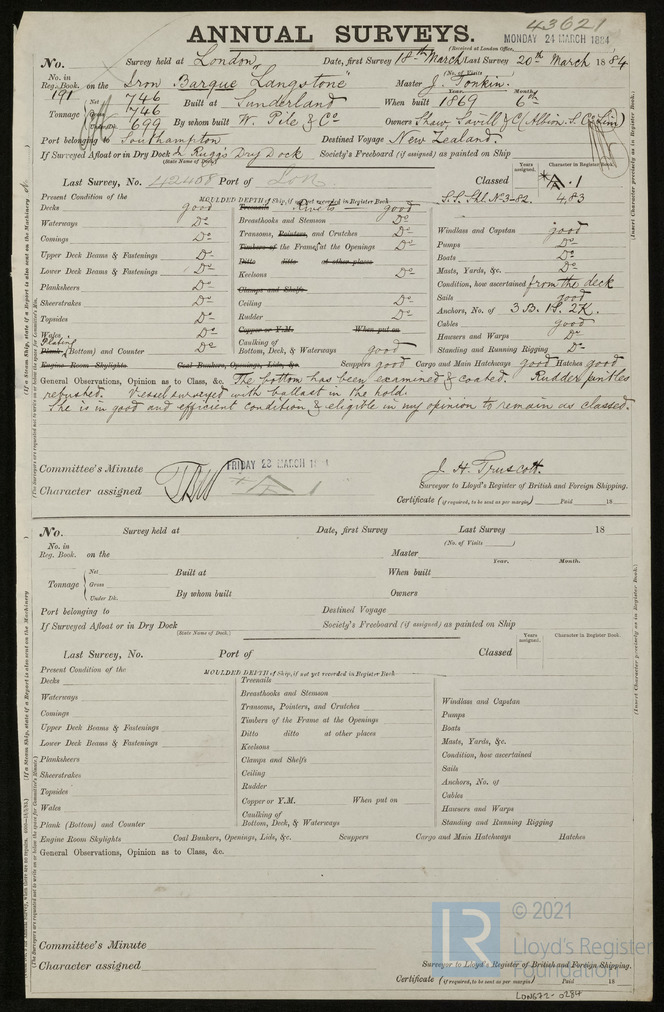 43621
ANNUAL SURVEYS.
(Received at London Office,
MONDAY 24 MARCH 1884
No. Survey held at London, Date, first Survey 18th March Last Survey 20th March 1884
(No. of Visits )
No. in Reg. Book. 191 on the Iron Barque "Langstone" Master J. Tonkin.
Year. Month.
Tonnage Net 746 Built at Sunderland When built 1869 6th
Gross 746
Under Dk. 699 By whom built W. Pile & Co Owners Shaw Savill & C (Albion S. Co Lim)
Port belonging to Southampton Destined Voyage New Zealand.
If Surveyed Afloat or in Dry Dock Rugg's Dry Dock Society's Freeboard (if assigned) as painted on Ship
(State Name of Dock.)
Years assigned. Character in Register Book.
Last Survey, No. 42468 Port of Lon Classed A.1
S.S. No 3-82. 4,83
MOULDED DEPTH of Ship, if not yet recorded in Register Book
Present Condition of the
Decks good Treenails Rivets good
Waterways Do Breasthooks and Stemson Do
Comings Do Transoms, Pointers, and Crutches Do Windlass and Capstan good
Upper Deck Beams & Fastenings Do Timbers of the Frames at the Openings Do Pumps Do
Ditto ditto at other places Boats Do
Lower Deck Beams & Fastenings Do Keelsons Do Masts, Yards, &c. Do
Planksheers Do Clamps and Shelfs Condition, how ascertained from the deck
Sheerstrakes Do Ceiling Do Sails good
Topsides Do Rudder Do Anchors, No. of 3 B. 1 S. 2 K.
Wales Do Copper or Y.M. When put on Cables good
Plating Caulking of Hawsers and Warps Do
Plank (Bottom) and Counter Do Bottom, Deck, & Waterways good Standing and Running Rigging Do
Engine Room Skylights Coal Bunkers, Openings, Lids, &c. Scuppers good Cargo and Main Hatchways good Hatches good
General Observations, Opinion as to Class, &c. The bottom has been examined & coated. Rudder pintles
rebushed. Vessel surveyed with ballast in the hold.
She is in good and efficient condition & eligible in my opinion to remain as classed.
Committee's Minute FRIDAY 28 MARCH J. H. Truscott.
Character assigned A 1 Surveyor to Lloyd's Register of British and Foreign Shipping.
Certificate (if required, to be sent as per margin) Paid 18
No. Survey held at Date, first Survey Last Survey 18
(No. of Visits )
No. in Reg. Book. on the Master
Year. Month.
Tonnage Net Built at When built
Gross
Under Dk. By whom built Owners
Port belonging to Destined Voyage
If Surveyed Afloat or in Dry Dock Society's Freeboard (if assigned) as painted on Ship
(State Name of Dock.)
Years assigned. Character in Register Book.
Last Survey, No. Port of Classed
MOULDED DEPTH of Ship, if not yet recorded in Register Book
Present Condition of the
Decks Treenails
Waterways Breasthooks and Stemson Windlass and Capstan
Comings Transoms, Pointers, and Crutches Pumps
Upper Deck Beams & Fastenings Timbers of the Frame at the Openings Boats
Lower Deck Beams & Fastenings Ditto ditto at other places Masts, Yards, &c.
Planksheers Keelsons Condition, how ascertained
Sheerstrakes Clamps and Shelfs Sails
Topsides Ceiling Anchors, No. of
Wales Rudder Cables
Copper or Y.M. When put on Hawsers and Warps
Plank (Bottom) and Counter Caulking of Bottom, Deck, & Waterways Standing and Running Rigging
Engine Room Skylights Coal Bunkers, Openings, Lids, &c. Scuppers Cargo and Main Hatchways Hatches
General Observations, Opinion as to Class, &c.
Committee's Minute
Character assigned Surveyor to Lloyd's Register of British and Foreign Shipping.
Certificate (if required, to be sent as per margin) Paid 18
LON672-0284
(Insert Character precisely as in Register Book.)
(Insert Character precisely as in Register Book.)
LR
© 2021
Lloyd's Register
Foundation